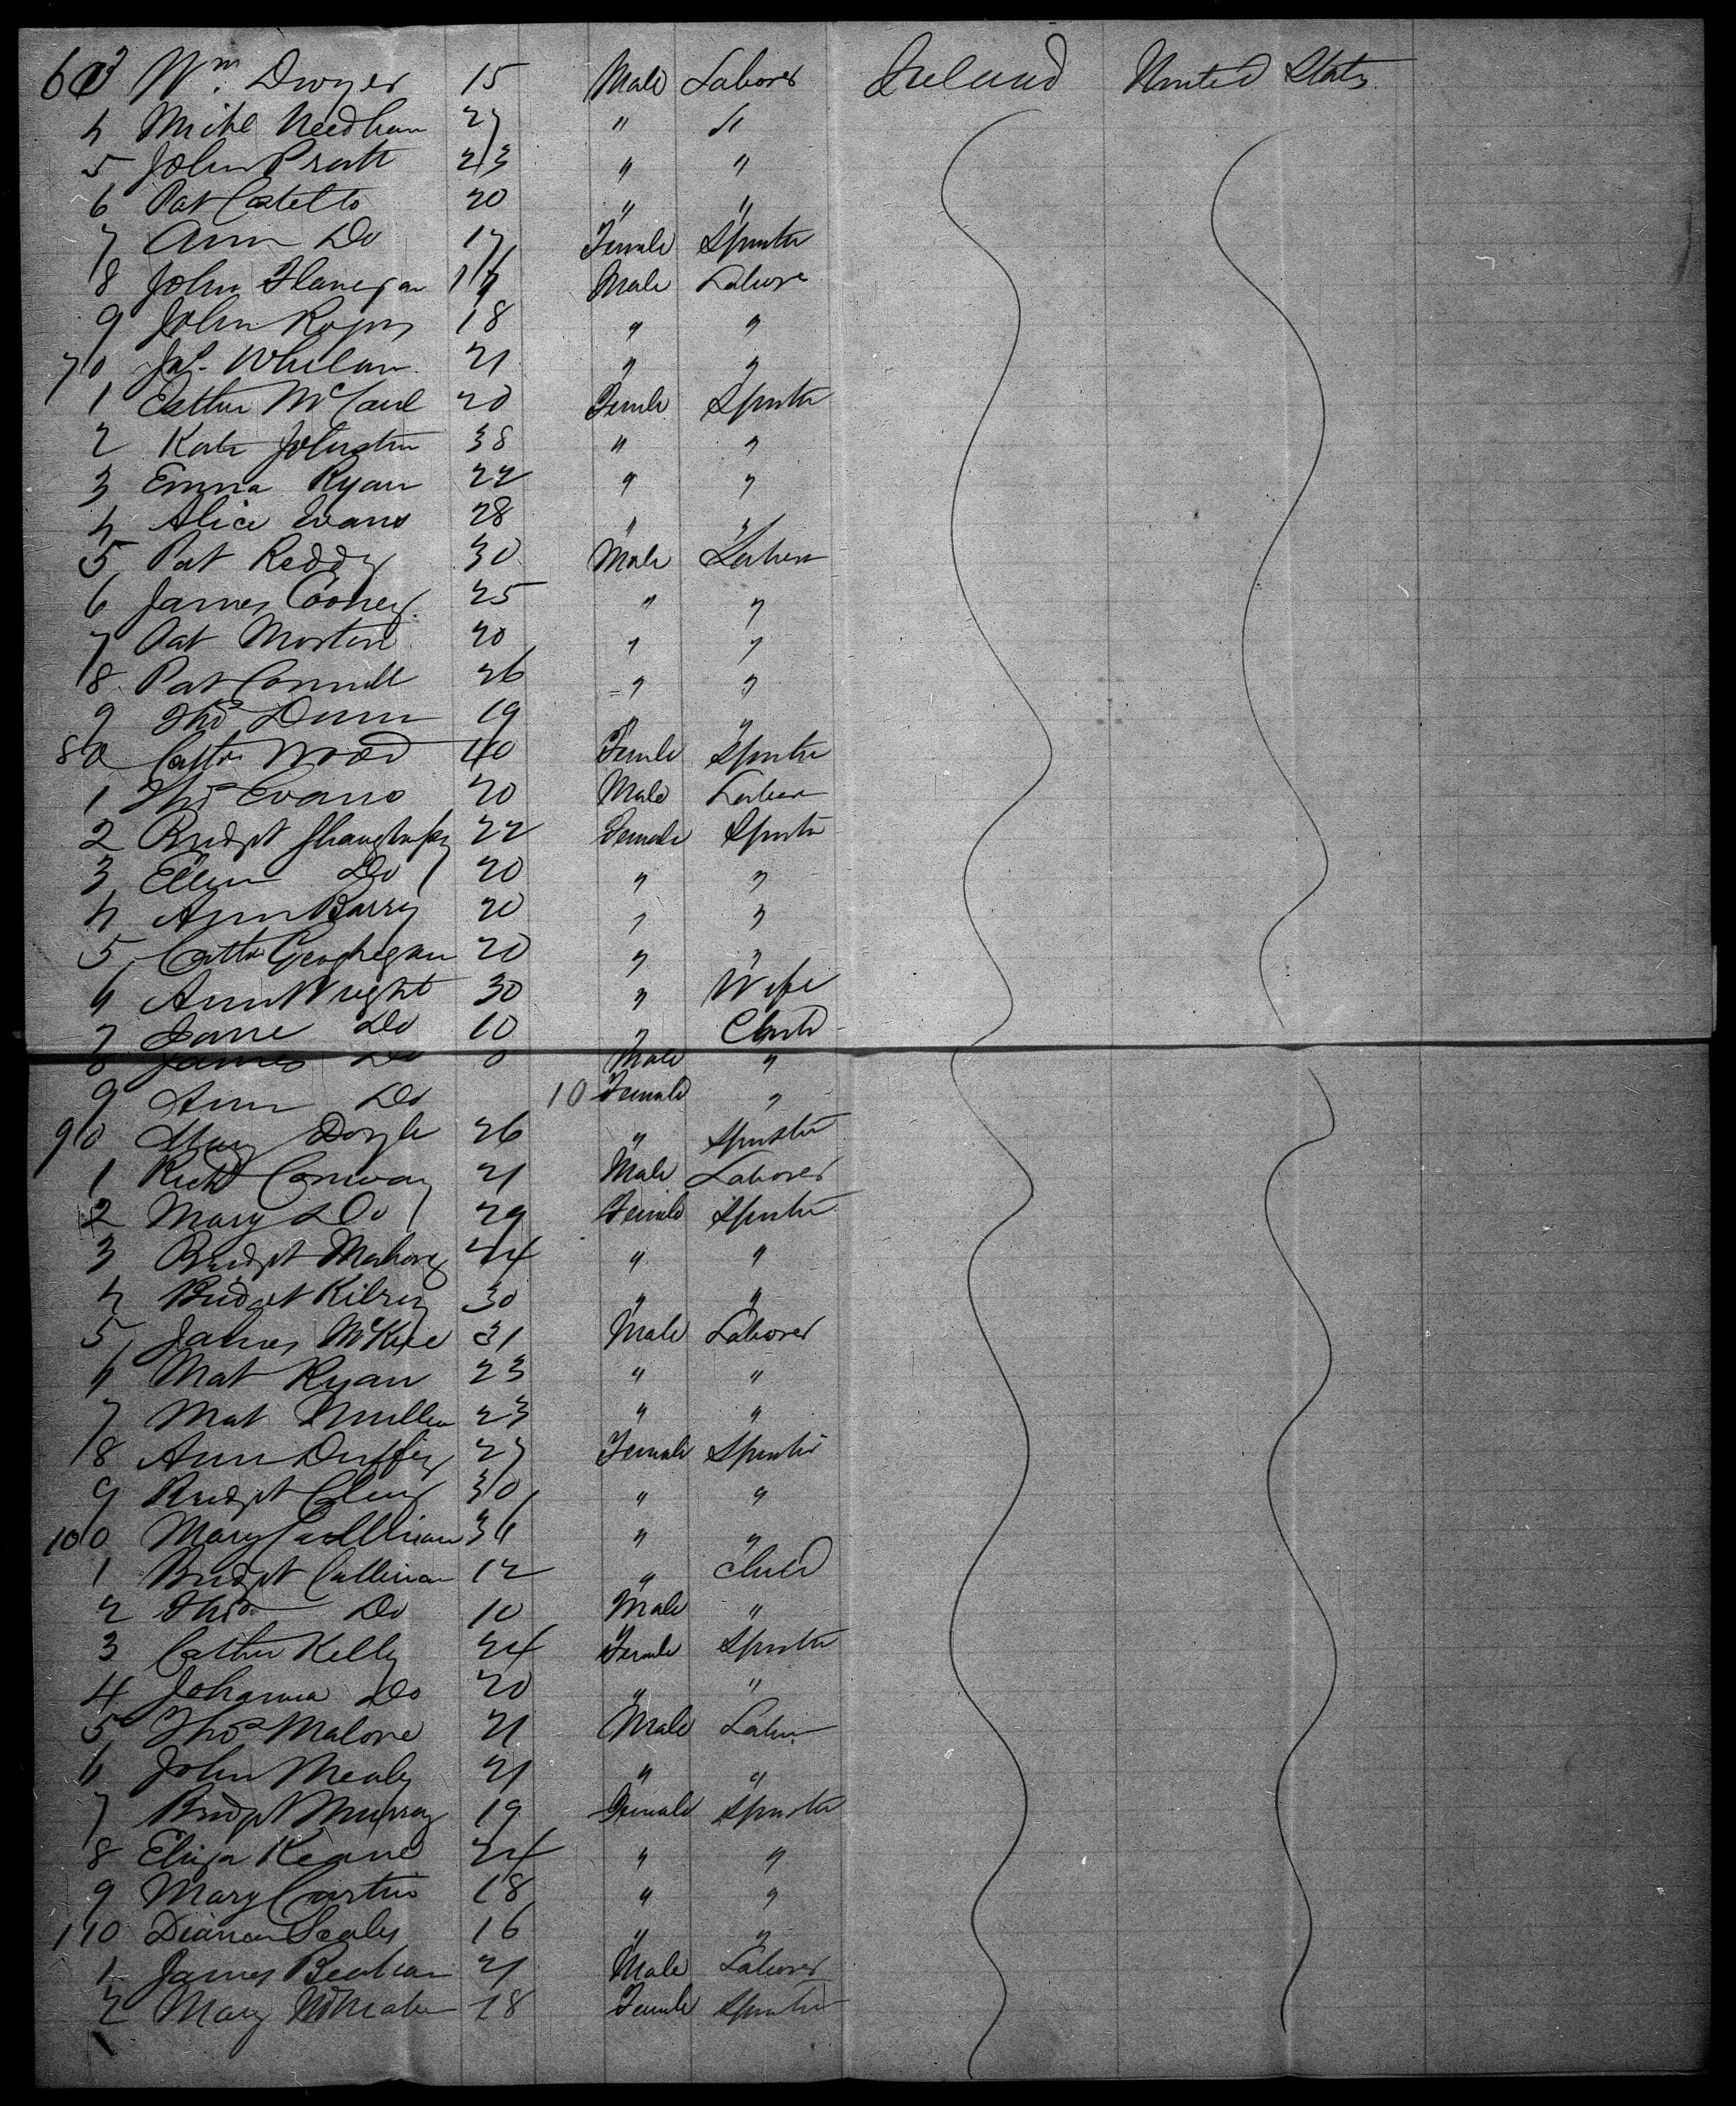 603 Wm. Dwyer 15 Male Laborer Ireland United States
4 Michl Needham 27 " "
5 John Pratt 23 " "
6 Pat Costello 20 " "
7 Ann Do 17 Female Spinster
8 John Flanegan 17 Male Labore
9 John 18 " "
70 Jas. Whelan 21 " "
1 Esther McCaul 20 Female Spinster
2 Kate Johnston 38 " "
3 Emma Ryan 22 " "
4 Alice Evans 28 " "
5 Pat Reddy 30 Male Laborer
6 James Cooney 25 " "
7 Pat Morton 20 " "
8 Pat Connell 26 " "
9 Thos Dunn 19 " "
80 Cathe Wood 40 Female Spinster
1 Thos Evans 20 Male Laborer
2 Bridget Shaughnessy 22 Female Spinster
3 Ellen Do 20 " "
4 Ann Barry 20 " "
5 Cathe Geoghegan 20 " "
6 Ann Wright 30 " Wife
7 Jane Do 10 " Child
8 James Do 8 Male "
9 Ann Do 10 Female "
90 Mary Doyle 26 " Spinster
1 Richd Conway 21 Male Laborer
2 Mary Do 29 Female Spinster
3 Bridget Mahony 24 " "
4 Bridget Kilroy 30 " "
5 James McKeee 31 Male Laborer
6 Mat Ryan 23 " "
7 Mat Mullen 23 " "
8 Ann Duffy 27 Female Spinster
9 Bridget Cleary 30 " "
100 Mary Cullinan 36 " "
1 Bridget Cullinan 12 " Child
2 Thos Do 10 Male "
3 Cather Kelly 24 Female Spinster
4 Johanna Do 20 " "
5 Thos Malone 21 Male Labore
6 John Mealy 21 " "
7 Bridget Murray 19 Female Spinster
8 Eliza Keane 24 " "
9 Mary Curtin 18 " "
110 Scaley 16 " "
1 James 21 Male Laborer
2 Mary 18 Female Spinster